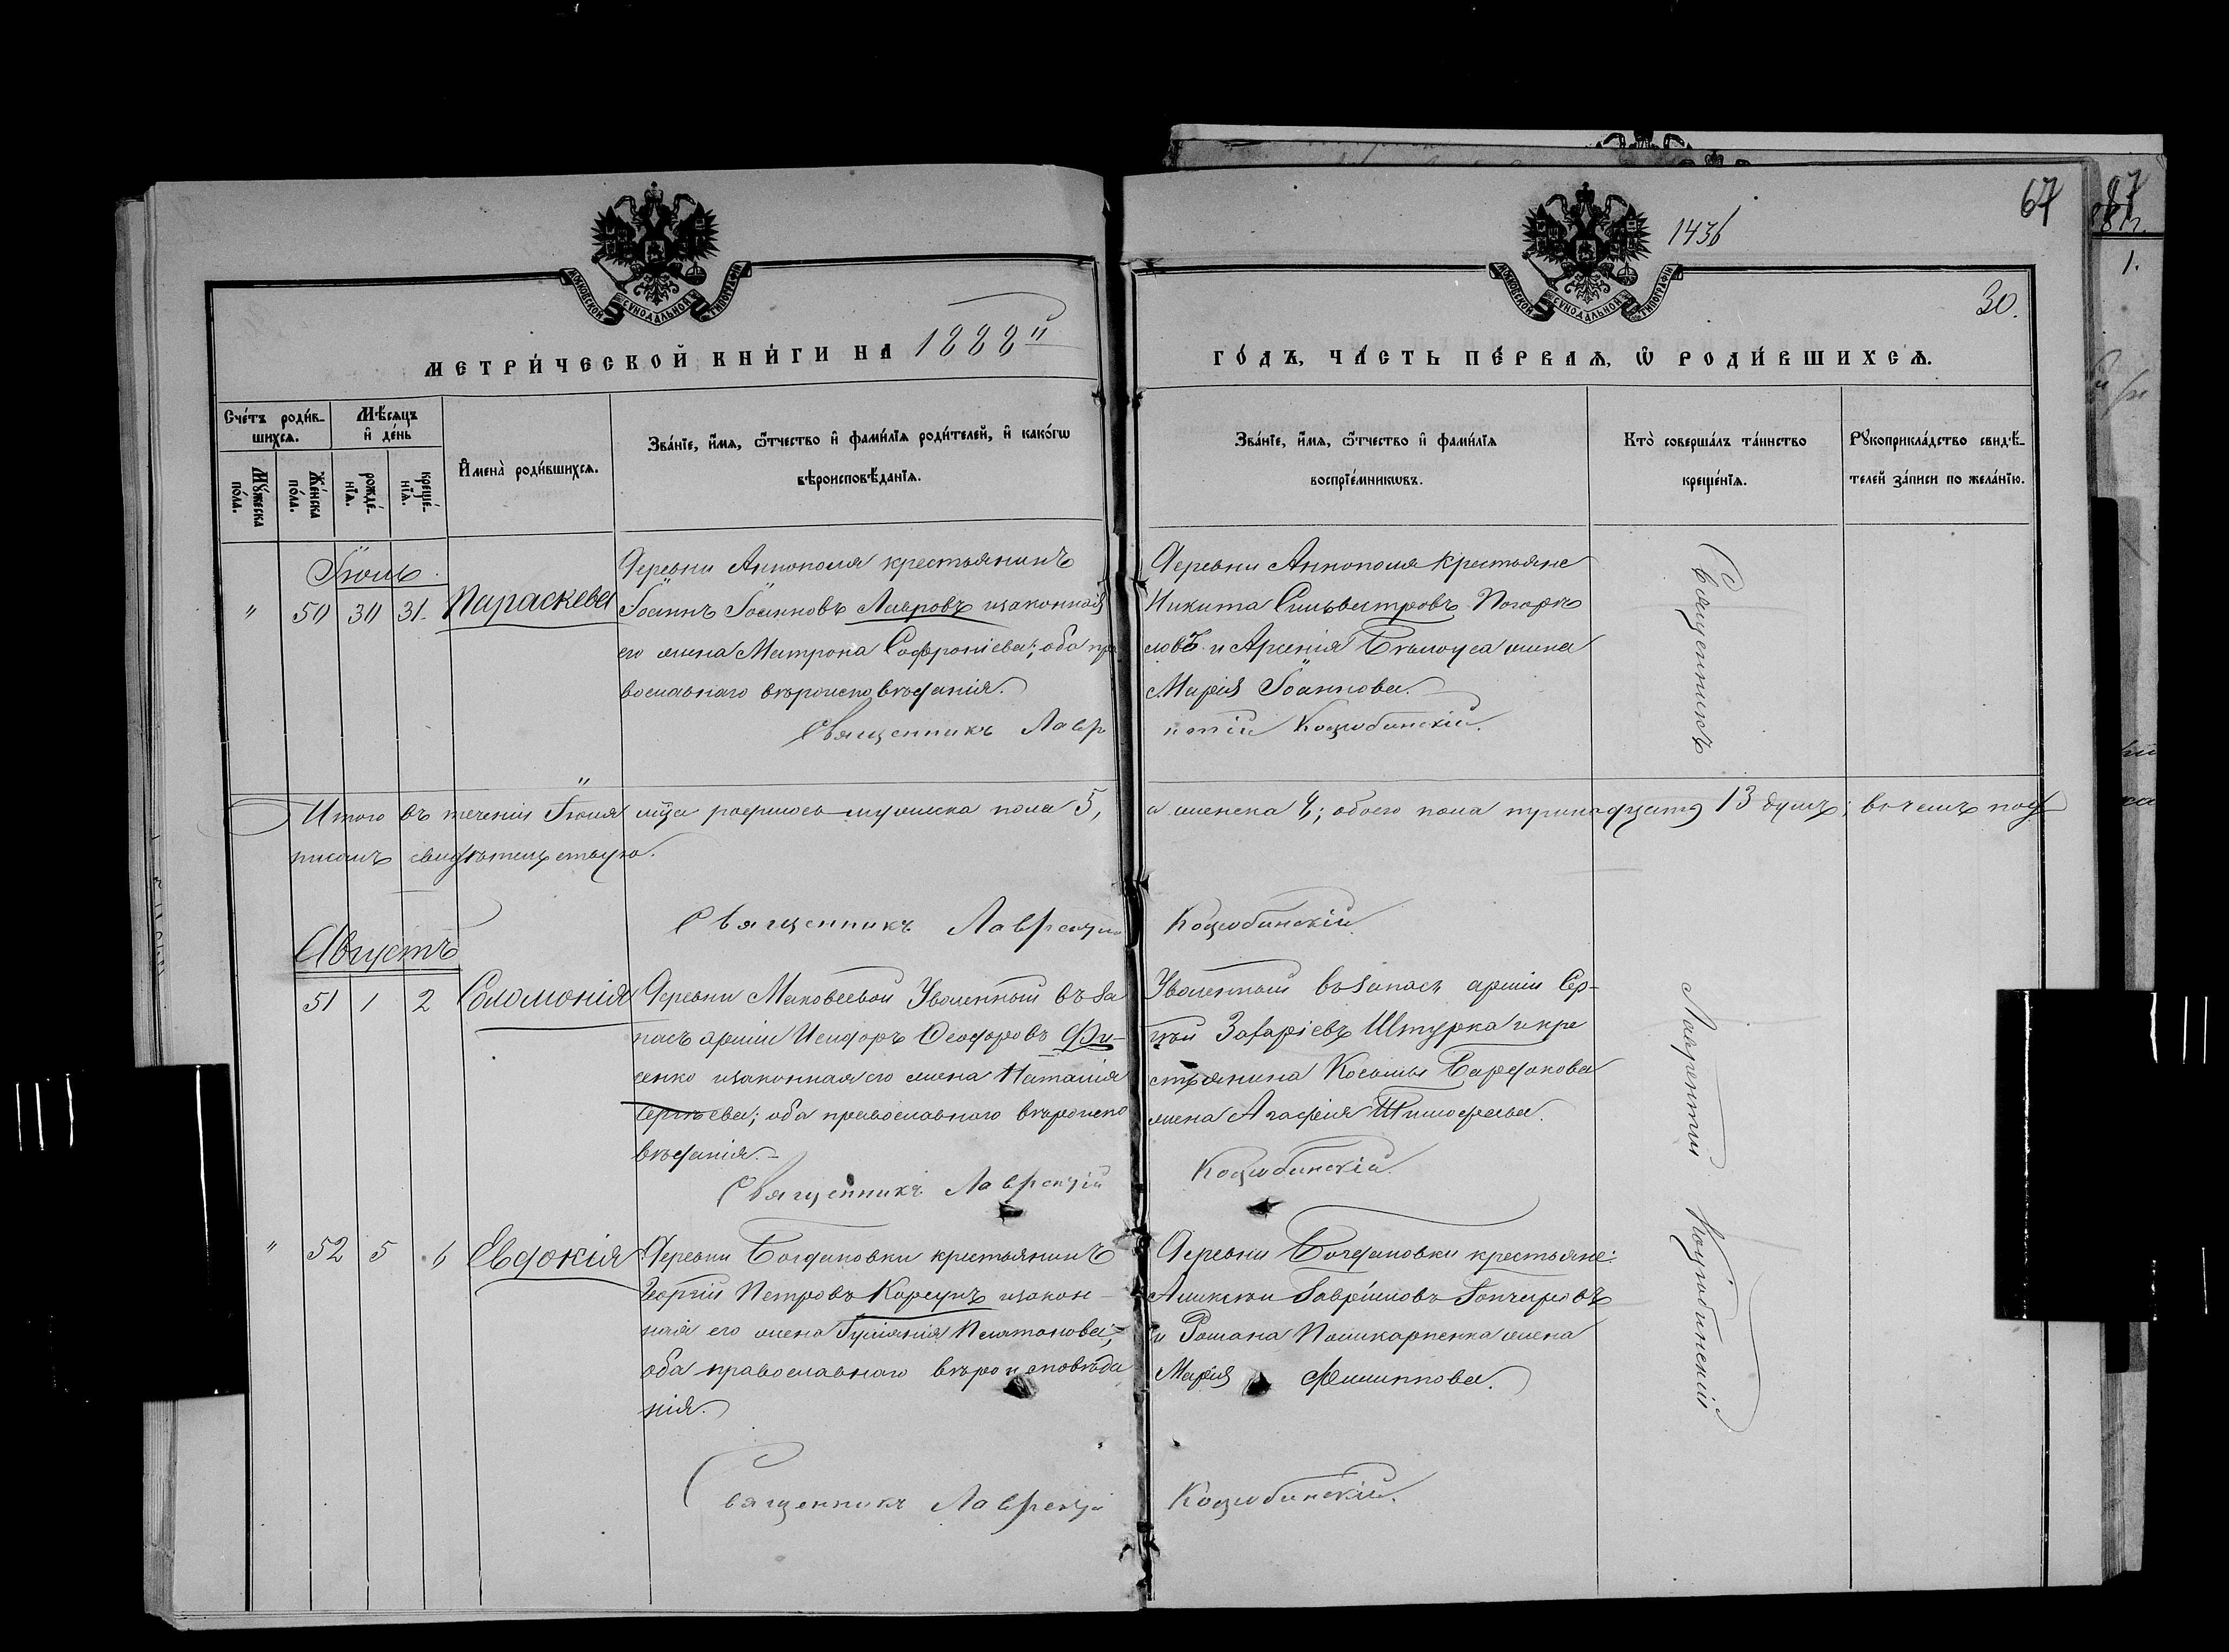 67
87
1436
1.
МОСКОВСКОЙ СУНОДАЛЬНОЙ ТИПОГРАФІИ
МОСКОВСКОЙ СУНОДАЛЬНОЙ ТИПОГРАФІИ
30.
МЕТРИ́ЧЕСКОЙ КНИ́ГИ НА 1888й
ГО́ДЪ, ЧА́СТЬ ПЕ́РВАѦ, Ѡ РОДИ́ВШИХСѦ.
Сче́тъ роди́в-
шихсѧ.
Мѣ́сѧцъ
и҆ де́нь
Мꙋ́жеска
по́ла.
Же́нска
по́ла.
рожде́-
нїѧ.
креще́-
нїѧ.
И҆мена̀ роди́вшихсѧ.
Зва́нїе, и҆́мѧ, ѻ҆́тчество и҆ фами́лїѧ роди́телей, и҆ како́гѡ
вѣроисповѣ́данїѧ.
Зва́нїе, и҆́мѧ, ѻ҆́тчество и҆ фами́лїѧ
воспрїе́мникѡвъ.
Кто̀ соверша́лъ та́инство
креще́нїѧ.
Рꙋкоприкла́дство свидѣ́-
телей за́писи по жела́нїю.
Іюль.
" 50 30 31. Параскева
Деревни Аннополя крестьянинъ
Іоаннъ Іоанновъ Лавровъ изаконная
его жена Матрона Софроніева; оба пра
вославнаго вѣроисповѣданія.
Священникъ Лавр
Деревни Аннополя крестьяне
Никита Сильвестровъ Погорѣ
ловъ и Арсенія Бѣлоуса жена
Марія Іоаннова.
ентій Коцюбинскій.
Священникъ
Итого въ теченіи Іюля мца родилось мужеска пола 5, а женска 8; обоего пола тринадцать 13 душъ; вочемъ под
писомъ свидѣтельствую.
Священникъ Лаврентій Коцюбинскій.
Августъ
51 1 2 Соломонія
Деревни Маковеевой Уволенный въ за
пасъ арміи Исидоръ Ѳеодоровъ Фи-
сенко изаконная его жена Наталія
Сергѣева; оба православнаго вѣроиспо
вѣданія.-
Священникъ Лаврентій
Уволенный въ запасъ арміи Сер-
гѣй Захаріевъ Штурка и кре
стьянина Косьмы Барданова
жена Агафія Тимофеева.
Коцюбинскій.
Лаврентій Коцюбинскій
" 52 5 6 Евдокія
Деревни Богдановки крестьянинъ
Георгій Петровъ Корсунъ изакон-
ная его жена Іуліанія Платонова;
оба православнаго вѣроисповѣда
нія.
Деревни Богдановки крестьяне:
Алексѣй Гавріиловъ Гончаровъ
и Романа Поликарпенка жена
Марія Филиппова.
Священникъ Лаврентій Коцюбинскій.